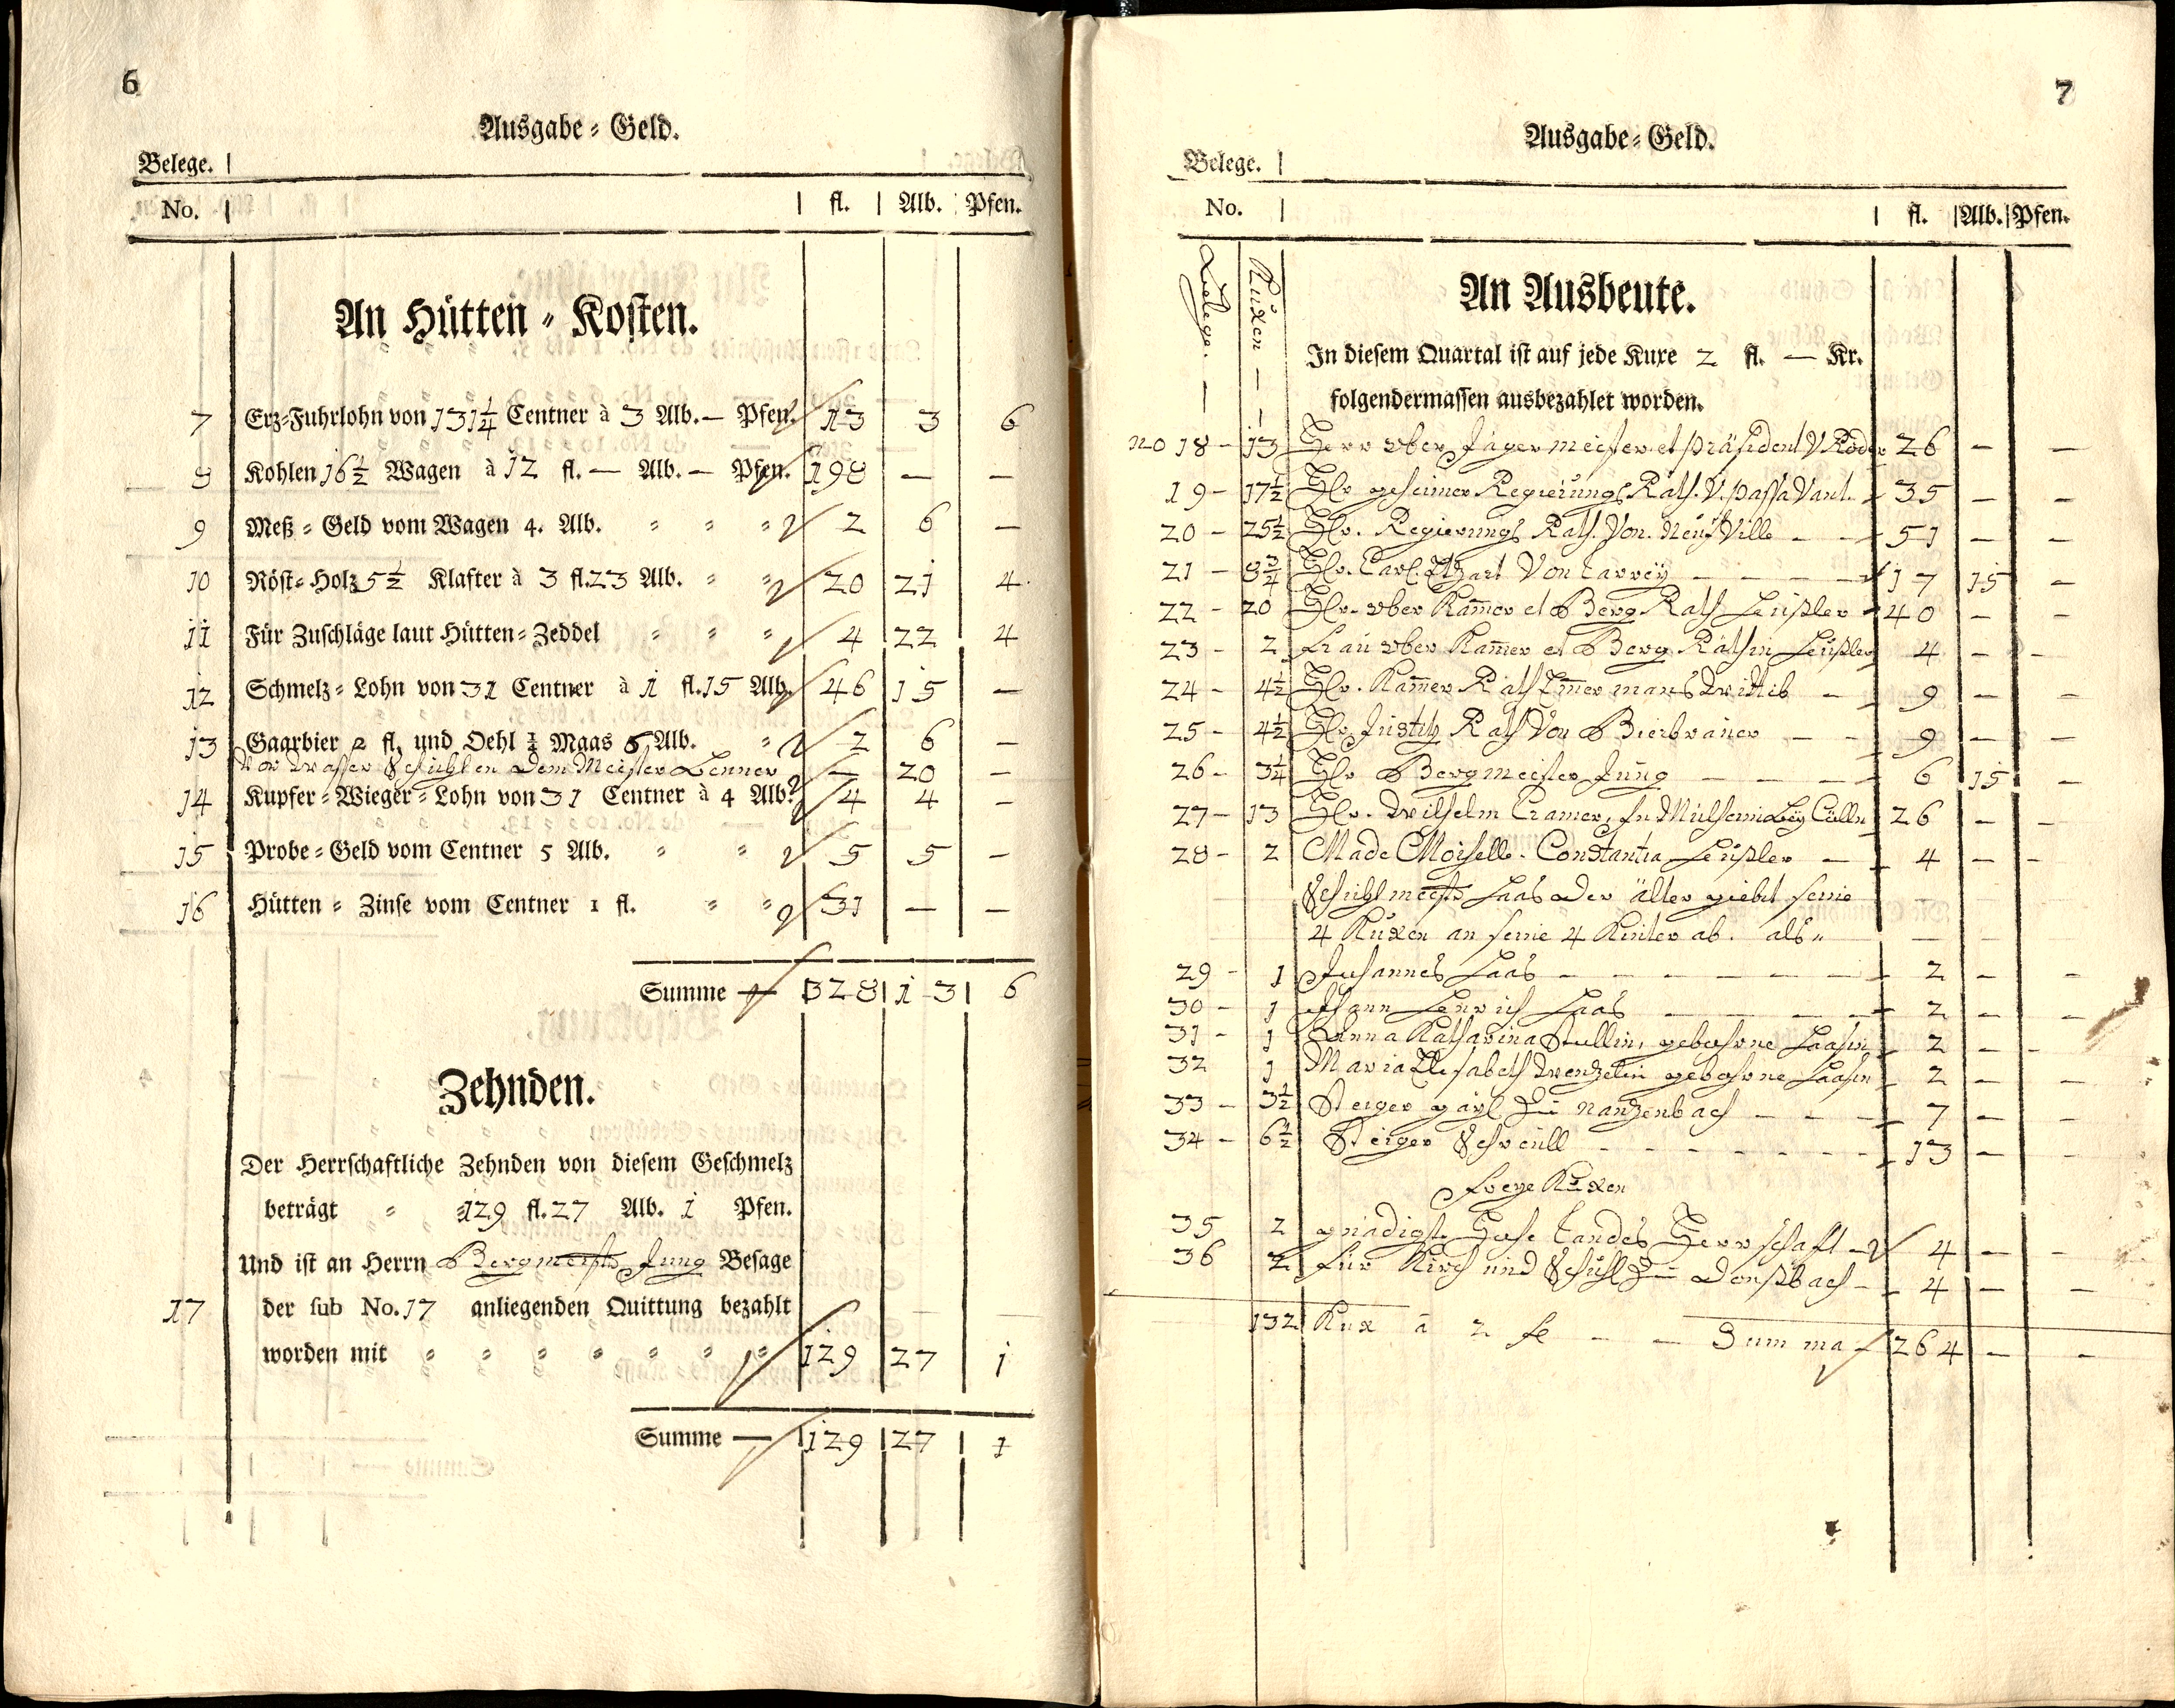 6
Ausgabe = Geld.
Belege.
No. fl. Alb. Pfen.
An Hütten = Kosten.
7 Erz=Fuhrlohn von 131 1/4 Centner à 3 Alb. — Pfen. 13 3 6
8 Kohlen 16 1/2 Wagen à 12 fl. — Alb. — Pfen. 198 — —
9 Meß = Geld vom Wagen 4. Alb. = = = 2 6 —
10 Röst = Holz 5 1/2 Klafter à 3 fl. 23 Alb. = = 20 21 4
11 Für Zuschläge laut Hütten = Zeddel = = = 4 22 4
12 Schmelz = Lohn von 31 Centner à 1 fl. 15 Alb. 46 15 —
13 Gaarbier 2 fl. und Oehl 1/2 Maas 6 Alb. = 2 6 —
Vor Wasser Schuhlen dem Meister Henner — 20 —
14 Kupfer = Wieger = Lohn von 31 Centner à 4 Alb. 4 4 —
15 Probe = Geld vom Centner 5 Alb. = = 5 5 —
16 Hütten = Zinse vom Centner 1 fl. = = 31 — —
Summe — 328 13 6
Zehnden.
Der Herrschaftliche Zehnden von diesem Geschmelz
beträgt = = 129 fl. 27 Alb. 1 Pfen.
Und ist an Herrn Bergmeistr Jung Besage
17 der sub No. 17 anliegenden Quittung bezahlt
worden mit = = = = = = = 129 27 1
Summe — 129 27 1
7
Ausgabe = Geld.
Belege.
No. fl. Alb. Pfen.
Belege. —
Kuxen —
An Ausbeute.
In diesem Quartal ist auf jede Kuxe 2 fl. — Kr.
folgendermassen ausbezahlet worden.
no 18 - 13 Herr ober Jägermeister et Präsident V Röder 26 — —
19 - 17 1/2 Hr geheimer Regierungs Rath. V. Passavant - 35 — —
20 - 25 1/2 Hr. Regierungs Rath. Von. Neuf Ville - - 51 — —
21 - 8 3/4 Hr. Carl. Von - - - - 17 15 —
22 - 20 Hr. ober Kam̄er et Berg Rath Heußler - 40 — —
23 - 2 Frau ober Kam̄er et Berg Räthin Heußler 4 — —
24 - 4 1/2 Hr. Kam̄er Rath Wittib - 9 — —
25 - 4 1/2 Hr Justitz Rath Von Bierbrauer - - 9 — —
26 - 3 1/4 Hr Bergmeister Jung - - - - 6 15 —
27 - 13 Hr. Wilhelm Cramer, In Mülheim bey Cölln 26 — —
28 - 2 Made Moiselle. Constantia Heußler - - 4 — —
Schuhlmeistr Haas der älter giebt seine
4 Kuxen an seine 4 Kinter ab. als"
29 - 1 Johannes Haas - - - - - - - 2 — —
30 - 1 Johann Henrich Haas - - - - - 2 — —
31 - 1 Anna Katharina Stullin, gebohrne Haasin 2 — —
32 1 Maria Elisabeth Wenzelin gebohrne Haasin 2 — —
33 - 3 1/2 Steiger zu nanzenbach - - - - 7 — —
34 - 6 1/2 Steiger Schreüll - - - - - - - 13 — —
freye Kuxen
35 2 gnädigste Hohe Landes Herrschaft - 4 — —
36 2 für Kirch und Schuhl zu Donßbach - - 4 — —
132 Kux à 2 fl - - Summa - 264 — —